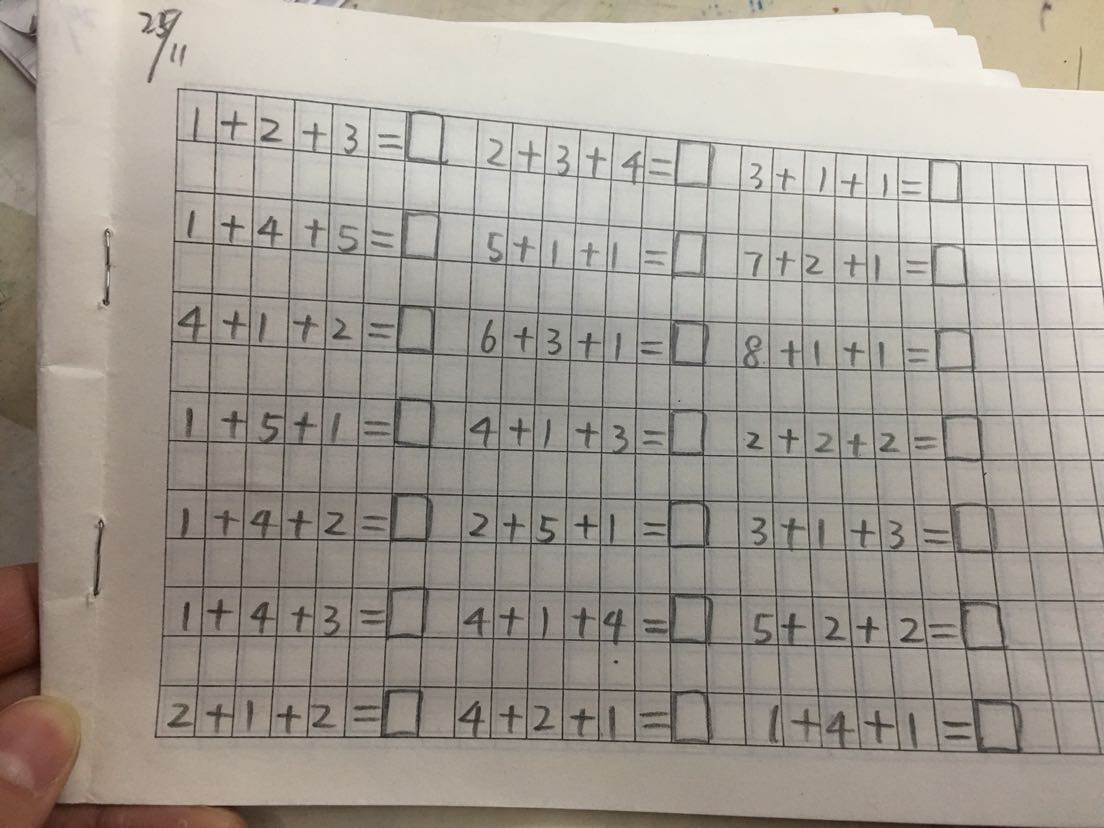 25/11
1+2+3=□ 2+3+4=□ 3+1+1=□
1+4+5=□ 5+1+1=□ 7+2+1=□
4+1+2=□ 6+3+1=□ 8+1+1=□
1+5+1=□ 4+1+3=□ 2+2+2=□
1+4+2=□ 2+5+1=□ 3+1+3=□
1+4+3=□ 4+1+4=□ 5+2+2=□
2+1+2=□ 4+2+1=□ 1+4+1=□